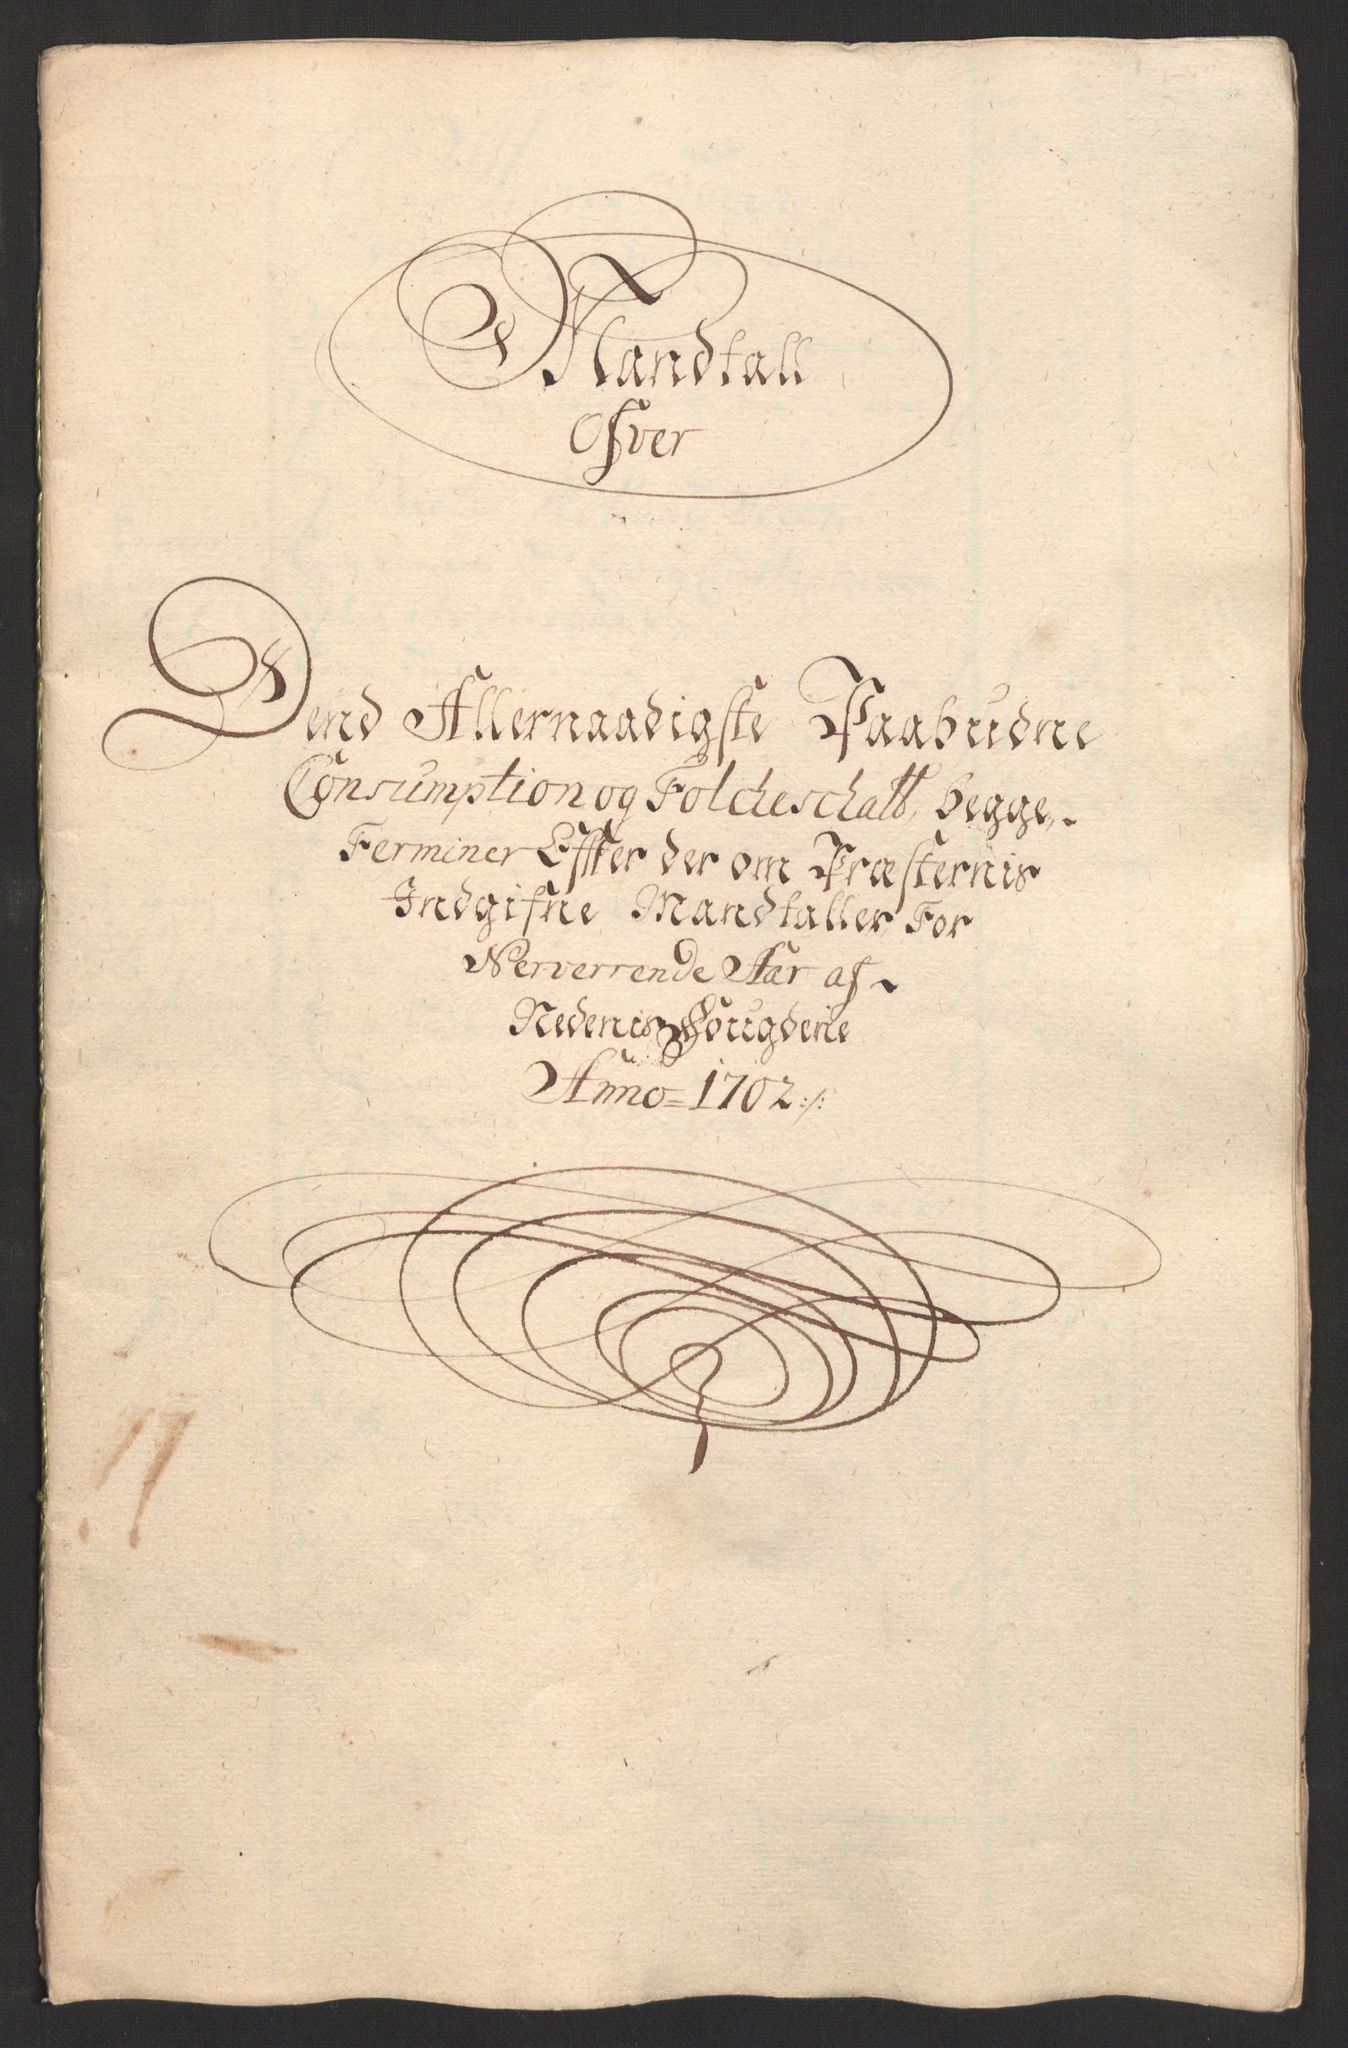 Mandtall
Ofver
Dend Allernaadigste Paabudne
Consumption og Folcheschatt, begge,
Terminer Effter der om Præsternis
Indgifne Mandtaller For
Nerverrende Aar af
Nedenis Fougderie
Anno = 1702 :/:
17